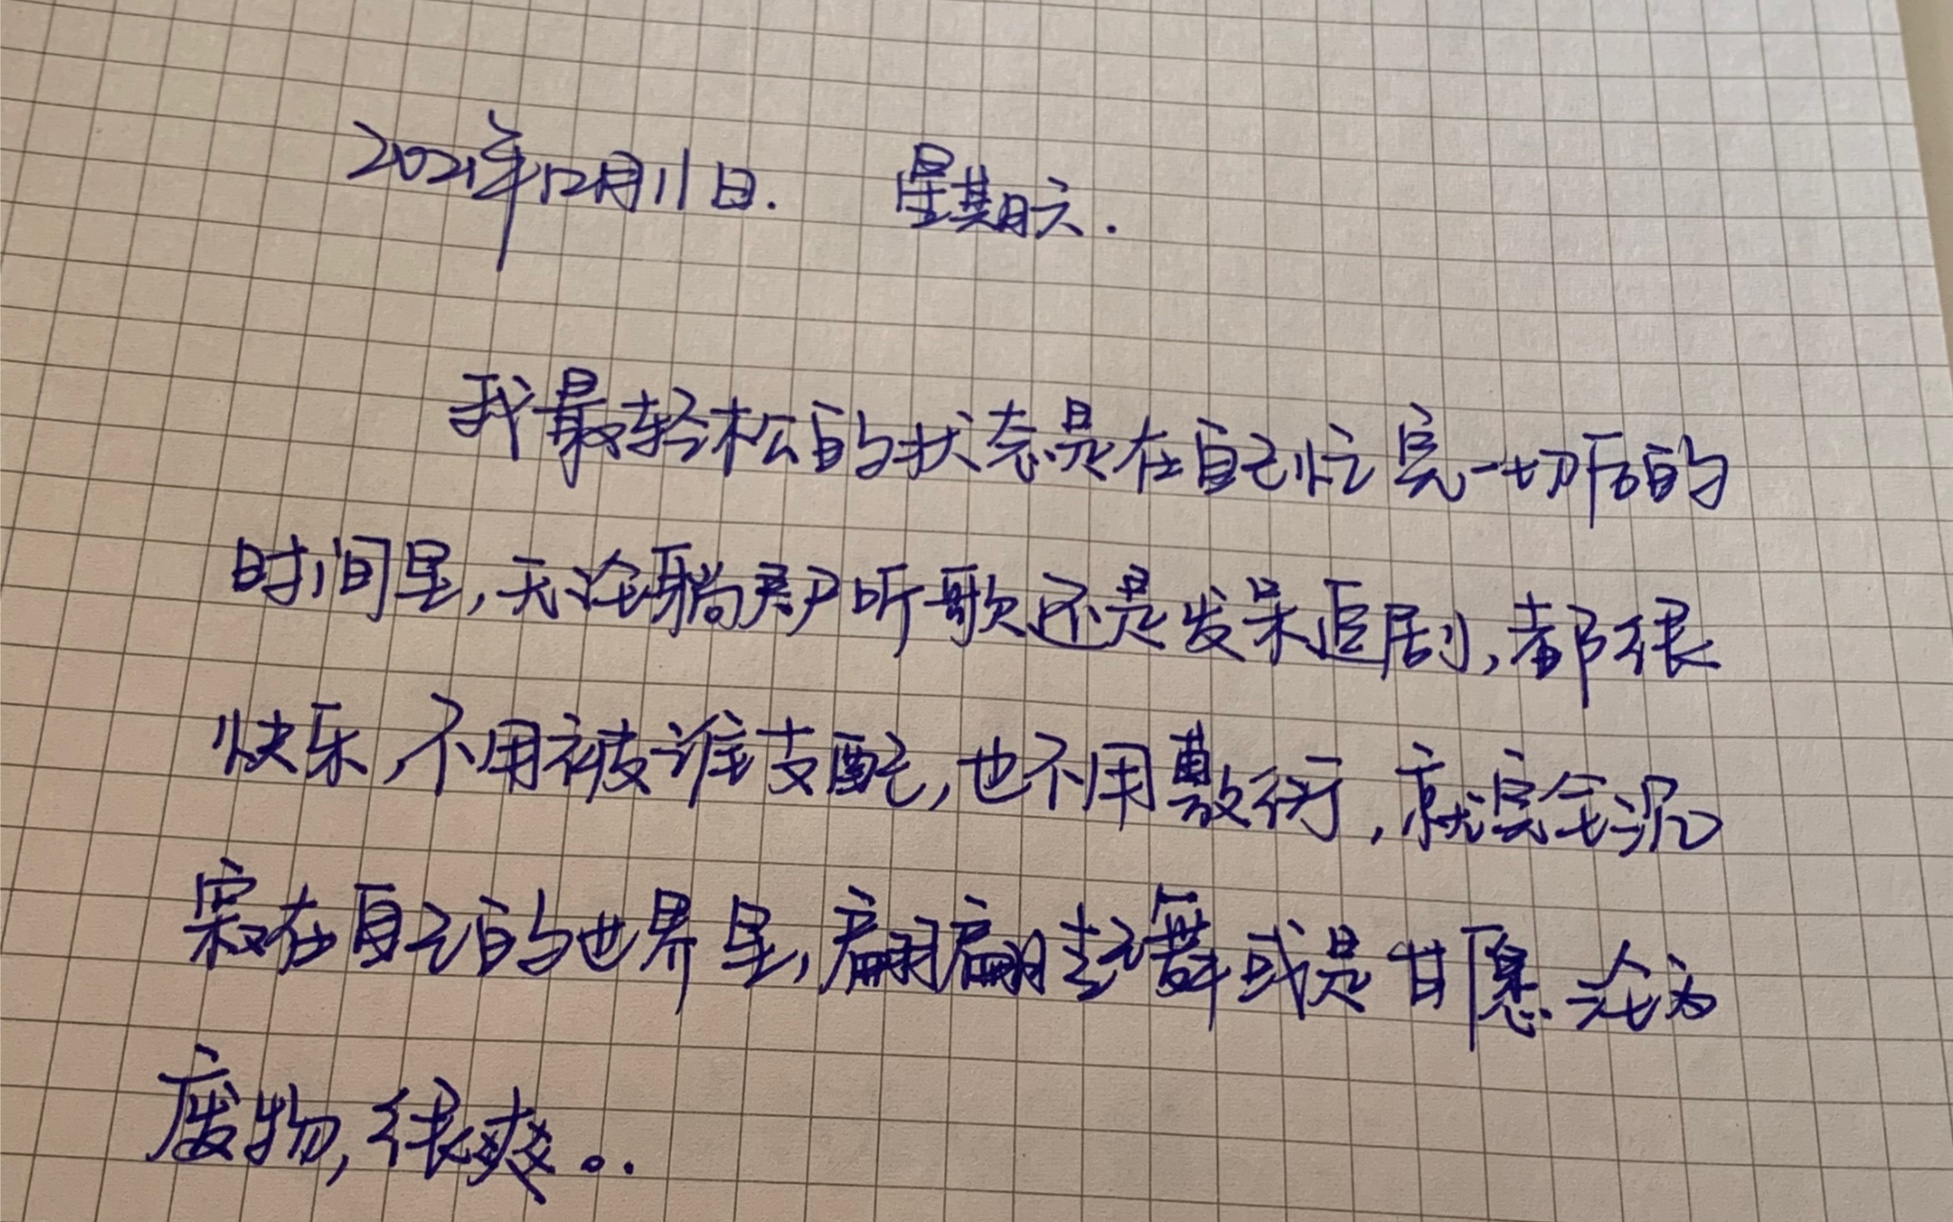 2021年12月11日. 星期六.
我最轻松的状态是在自己忙完一切后的
时间里,无论躺尸听歌还是发呆追剧,都很
快乐,不用被谁支配,也不用敷衍,就完全沉
寂在自己的世界里,翩翩起舞或是甘愿沦为
废物,很爽。.